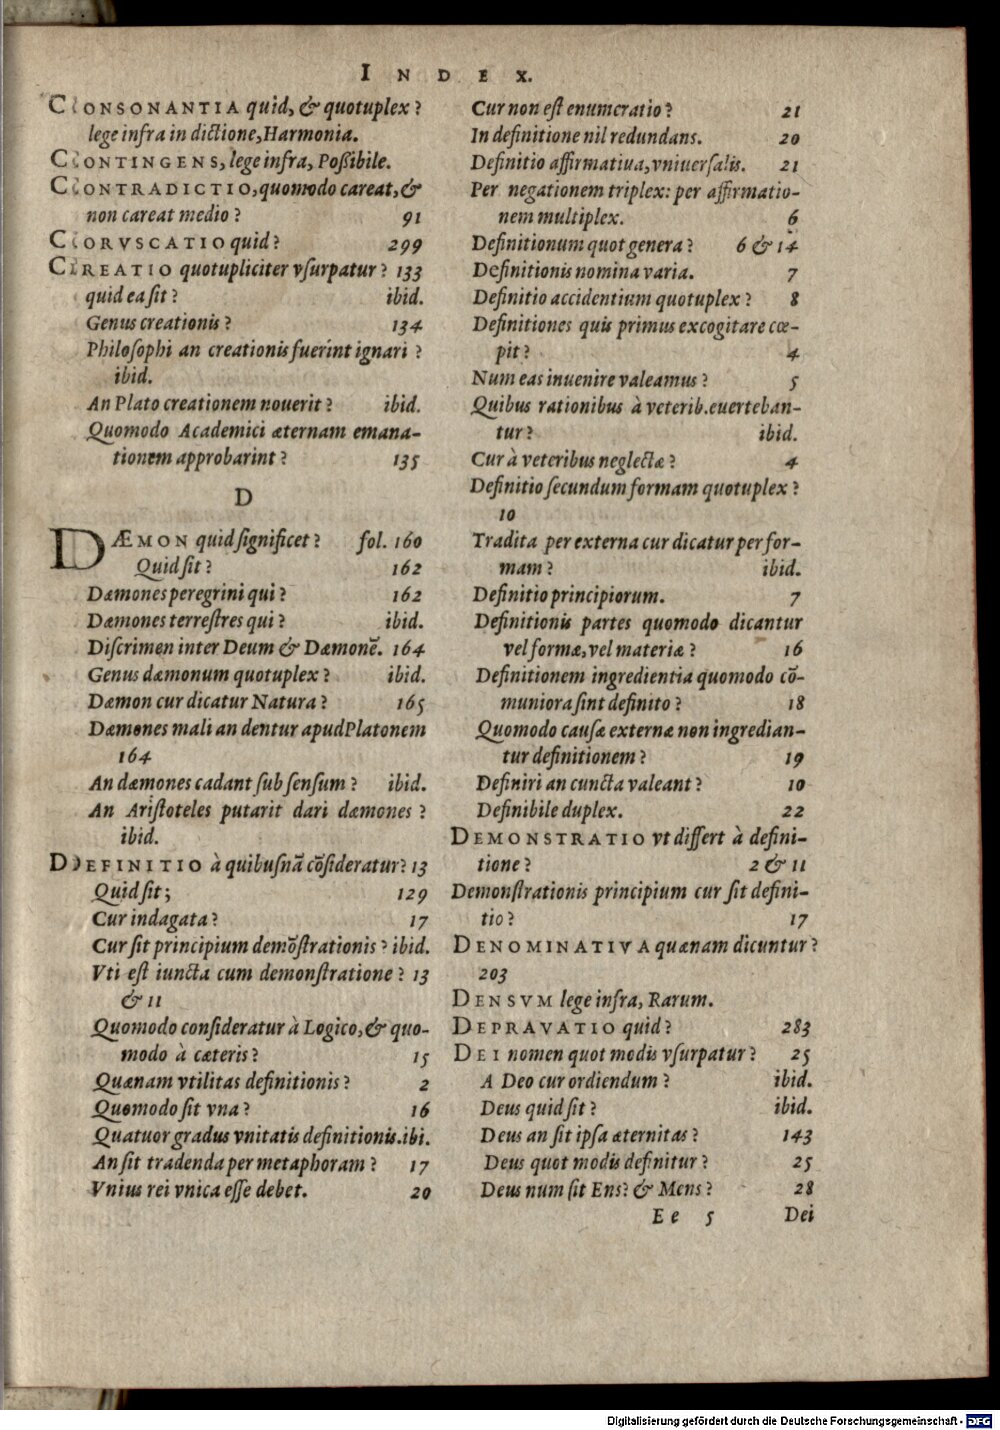 INDEX.
CONSONANTIA quid, & quotuplex?
lege infra in dictione, Harmonia.
CONTINGENS, lege infra, Poßibile.
CONTRADICTIO, quomodo careat, &
non careat medio? 91
CORVSCATIO quid? 299
CREATIO quotupliciter vſurpatur? 133
quid ea ſit? ibid.
Genus creationis? 134
Philoſophi an creationis fuerint ignari?
ibid.
An Plato creationem nouerit? ibid.
Quomodo Academici æternam emana-
tionem approbarint? 135
D
DÆMON quid ſignificet? fol. 160
Quid ſit? 162
Dæmones peregrini qui? 162
Dæmones terreſtres qui? ibid.
Diſcrimen inter Deum & Dæmonē. 164
Genus dæmonum quotuplex? ibid.
Dæmon cur dicatur Natura? 165
Dæmones mali an dentur apud Platonem
164
An dæmones cadant ſub ſenſum? ibid.
An Ariſtoteles putarit dari dæmones?
ibid.
DEFINITIO à quibuſnā cōſideratur? 13
Quid ſit; 129
Cur indagata? 17
Cur ſit principium demōſtrationis? ibid.
Vti eſt iuncta cum demonſtratione? 13
& 11
Quomodo conſideratur à Logico, & quo-
modo à cæteris? 15
Quænam vtilitas definitionis? 2
Quomodo ſit vna? 16
Quatuor gradus vnitatis definitionis. ibi.
An ſit tradenda per metaphoram? 17
Vnius rei vnica eſſe debet. 20
Cur non eſt enumeratio? 21
In definitione nil redundans. 20
Definitio affirmatiua, vniuerſalis. 21
Per negationem triplex: per affirmatio-
nem multiplex. 6
Definitionum quot genera? 6 & 14
Definitionis nomina varia. 7
Definitio accidentium quotuplex? 8
Definitiones quis primus excogitare cœ-
pit? 4
Num eas inuenire valeamus? 5
Quibus rationibus à veterib. euerteban-
tur? ibid.
Cur à veteribus neglectæ? 4
Definitio ſecundum formam quotuplex?
10
Tradita per externa cur dicatur per for-
mam? ibid.
Definitio principiorum. 7
Definitionis partes quomodo dicantur
vel formæ, vel materiæ? 16
Definitionem ingredientia quomodo cō-
muniora ſint definito? 18
Quomodo cauſæ externæ non ingredian-
tur definitionem? 19
Definiri an cuncta valeant? 10
Definibile duplex. 22
DEMONSTRATIO vt differt à defini-
tione? 2 & 11
Demonſtrationis principium cur ſit defini-
tio? 17
DENOMINATIVA quænam dicuntur?
203
DENSVM lege infra, Rarum.
DEPRAVATIO quid? 283
DEI nomen quot modis vſurpatur? 25
A Deo cur ordiendum? ibid.
Deus quid ſit? ibid.
Deus an ſit ipſa æternitas? 143
Deus quot modis definitur? 25
Deus num ſit Ens? & Mens? 28
Ee 5 Dei
Digitalisierung gefördert durch die Deutsche Forschungsgemeinschaft - DFG